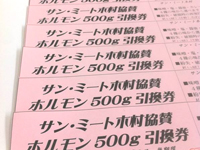 ホルモン 500g 引換券
サン・ミート木村協賛
ホルモン 500g 引換券
サン・ミート木村協賛
ホルモン 500g 引換券
サン・ミート木村協賛
ホルモン 500g 引換券
サン・ミート木村協賛
ホルモン 500g 引換券